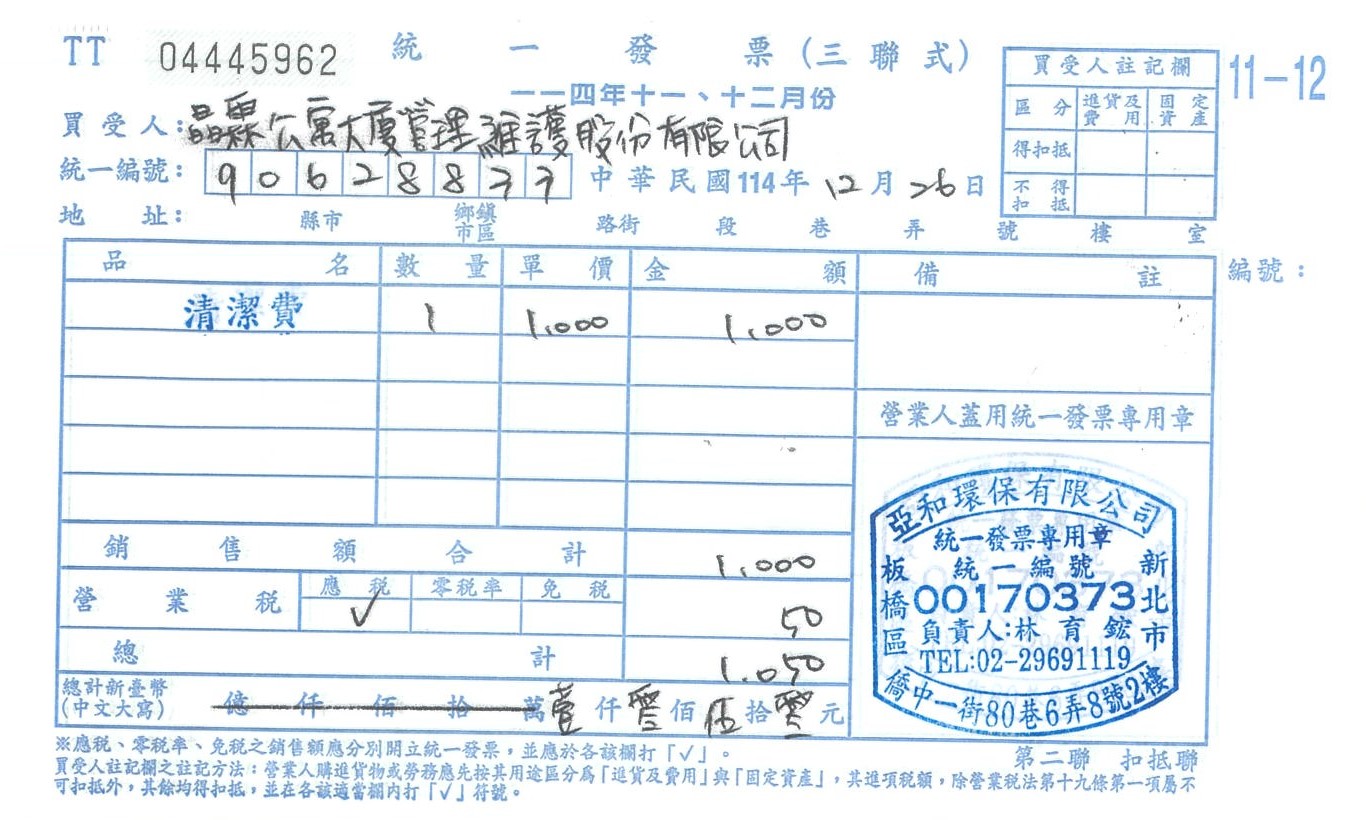 TT 04445962 統一發票(三聯式)
一一四年十一、十二月份
11-12
買受人註記欄
區分 進貨及費用 固定資產
得扣抵
不得扣抵
買受人:晶 公寓大廈管理維護股份有限公司
統一編號:90628877 中華民國114年12月26日
地址: 縣市 鄉鎮市區 路街 段 巷 弄 號 樓 室
品名 數量 單價 金額 備註 編號:
清潔費 1 1,000 1,000
營業人蓋用統一發票專用章
銷售額合計 1,000
營業稅 應稅 ✓ 零稅率 免稅 50
總計 1,050
總計新臺幣(中文大寫) 億仟佰拾萬壹仟零佰伍拾零元
亞和環保有限公司
統一發票專用章
統一編號
00170373
負責人:林育鋐
TEL:02-29691119
新北市板橋區
僑中一街80巷6弄8號2樓
※應稅、零稅率、免稅之銷售額應分別開立統一發票,並應於各該欄打「✓」。
第二聯 扣抵聯
買受人註記欄之註記方法:營業人購進貨物或勞務應先按其用途區分為「進貨及費用」與「固定資產」,其進項稅額,除營業稅法第十九條第一項屬不
可扣抵外,其餘均得扣抵,並在各該適當欄內打「✓」符號。